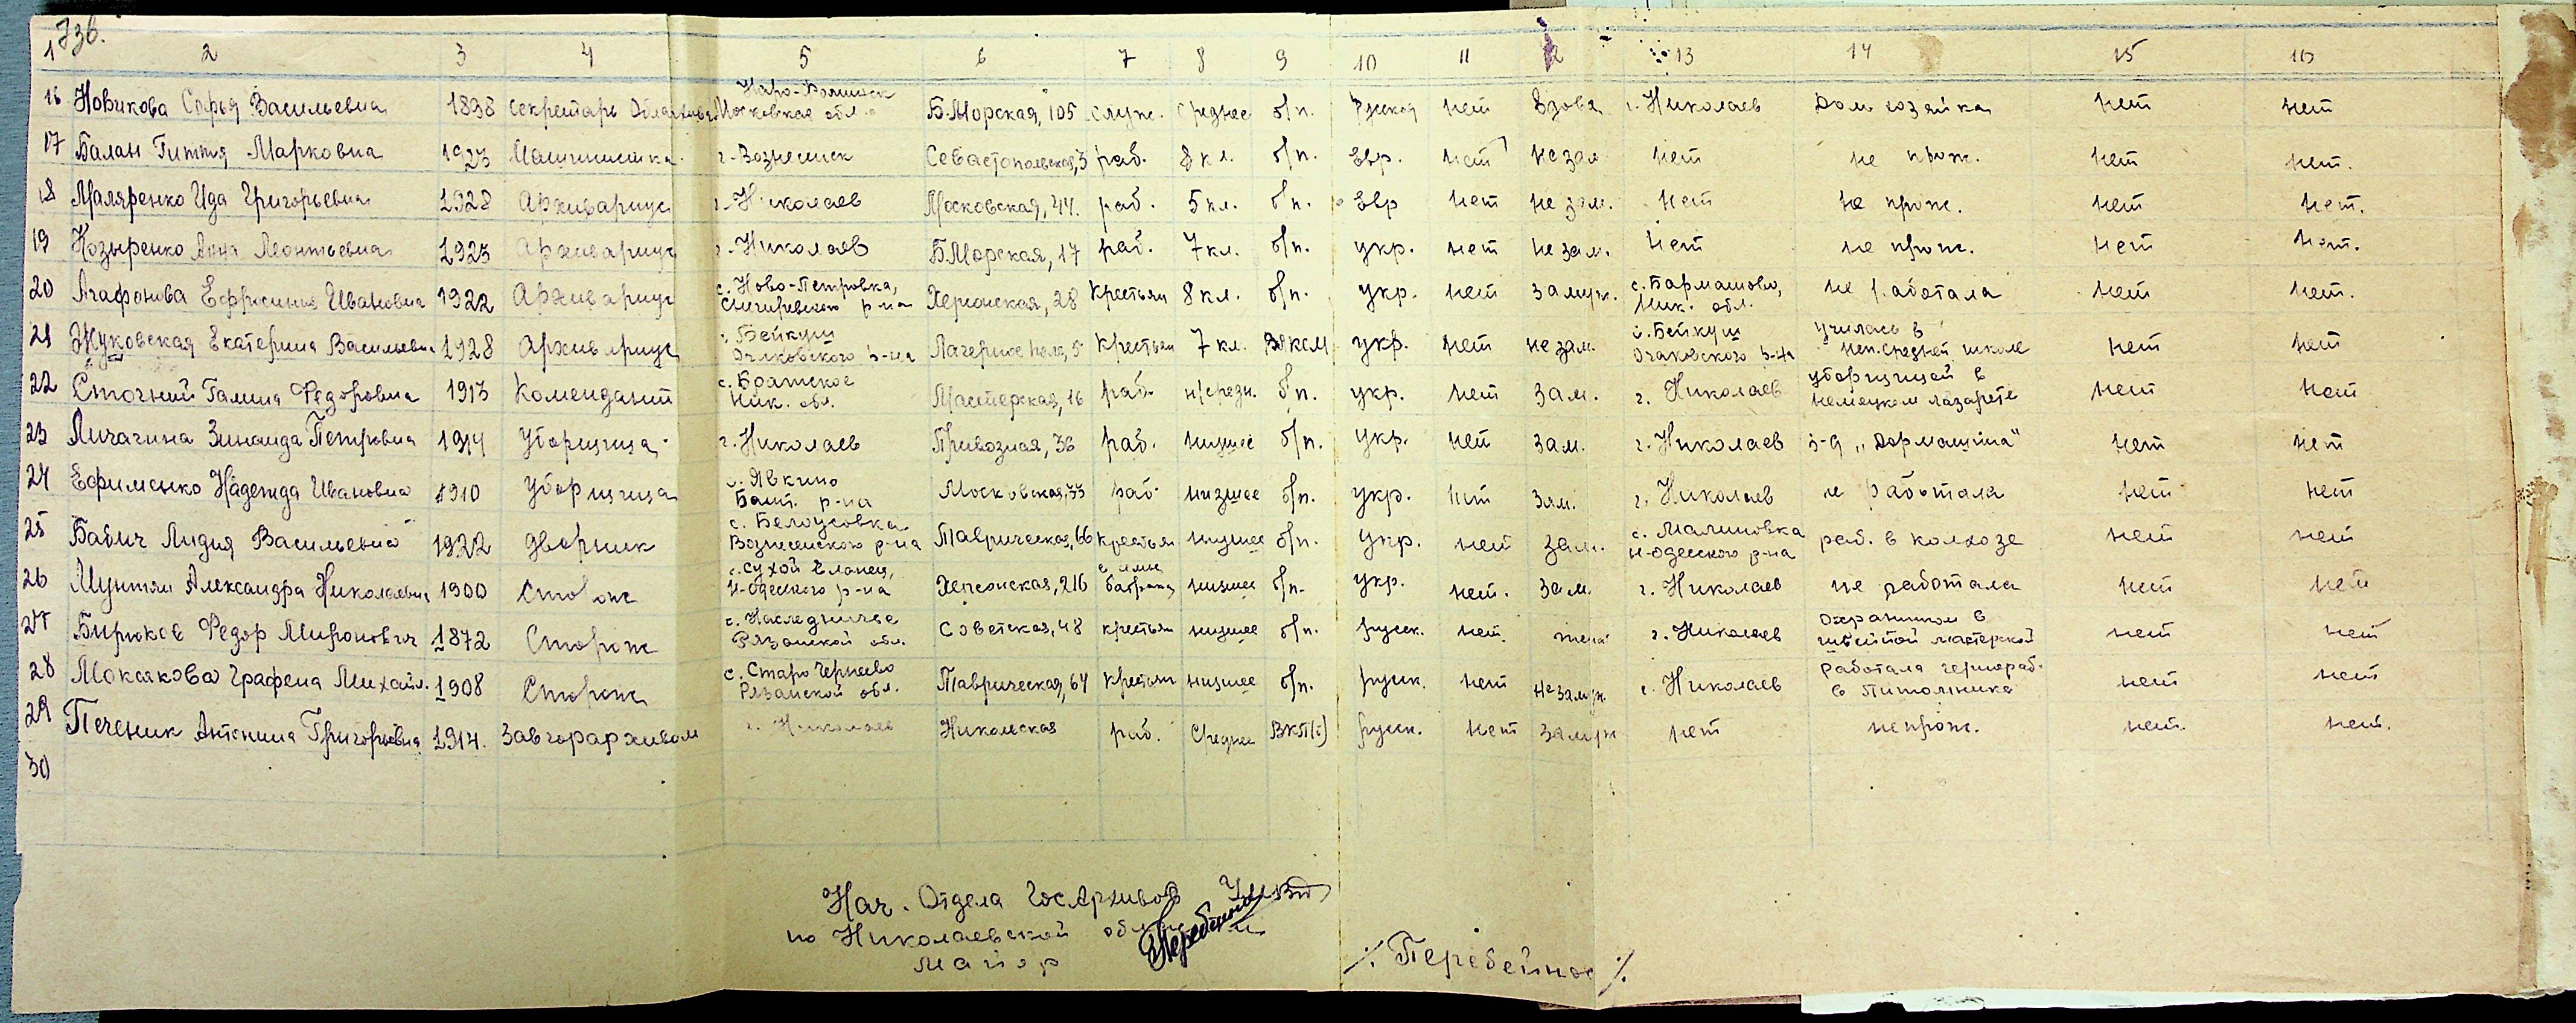 73б.
1 2 3 4 5 6 7 8 9 10 11 12 13 14 15 16
16 Новикова Софья Васильевна 1898 Секретарь Облархива Наро-Фоминск Московская обл. Б.Морская, 105 служ. среднее б/п. Русская нет вдова г. Николаев Дом. хозяйка нет нет
17 Балан Гиття Марковна 1923 Машинистка г. Вознесенск Севастопольская, 3 раб. 8 кл. б/п. Евр. нет не зам. нет не прож. нет нет.
18 Маляренко Ида Григорьевна 1928 Архивариус г. Николаев Московская, 44. раб. 5 кл. б/п. Евр нет не зам. нет не прож. нет нет.
19 Козыренко Анна Леонтьевна 1925 Архивариус г. Николаев Б.Морская, 17 раб. 7 кл. б/п. укр. нет не зам. нет не прож. нет нет.
20 Агафонова Ефросинья Ивановна 1922 Архивариус с. Ново-Петровка, Снигиревского р-на Херсонская, 28 Крестьян 8 кл. б/п. укр. нет замуж. с. Бармашово, Ник. обл. не работала нет нет.
21 Жуковская Екатерина Васильевна 1928 Архивариус с. Бейкуш Очаковского р-на Лагерное поле, 5 Крестьян 7 кл. ВЛКСМ укр. нет не зам. с. Бейкуш Очаковского р-на училась в неп. средней школе нет нет
22 Сточний Галина Федоровна 1913 Комендант с. Братское Ник. обл. Мастерская, 16 раб. н/средн. б/п. укр. нет зам. г. Николаев уборщицей в немецком лазарете нет нет
23 Личагина Зинаида Петровна 1914 Уборщица г. Николаев Привозная, 36 раб. низшее б/п. укр. нет зам. г. Николаев з-д „Дормашина" нет нет
24 Ефименко Надежда Ивановна 1910 Уборщица с. Явкино Башт. р-на Московская, 33 раб. низшее б/п. укр. нет зам. г. Николаев не работала нет нет
25 Бабич Лидия Васильевна 1922 дворник с. Белоусовка Вознесенского р-на Таврическая, 66 крестьян низшее б/п. укр. нет зам. с. Малиновка Н-Одесского р-на раб. в колхозе нет нет
26 Мунтян Александра Николаевна 1900 Сторож с. Сухой Еланец, Н-Одесского р-на Херсонская, 216 батрака низшее б/п. укр. нет. зам. г. Николаев не работала нет нет
27 Бирюков Федор Миронович 1872 Сторож с. Наследничье Рязанской обл. Советская, 48 крестьян низшее б/п. русск. нет. женат г. Николаев Охранником в швейной мастерской нет нет
28 Мокшкова Графена Михайл. 1908 Сторож с. Старо Чернеево Рязанской обл. Таврическая, 64 Крестьян низшее б/п. русск. нет не замуж. г. Николаев Работала чернораб. в Питомнике нет нет
29 Печеник Антонина Григорьевна 1914. Завгорархивом г. Николаев Никольская раб. Среднее ВКП(б) русск. нет замуж нет не прож. нет. нет.
30
Нач. Отдела ГосАрхивов УМВД
по Николаевской области
майор
/. Перебейнос ./